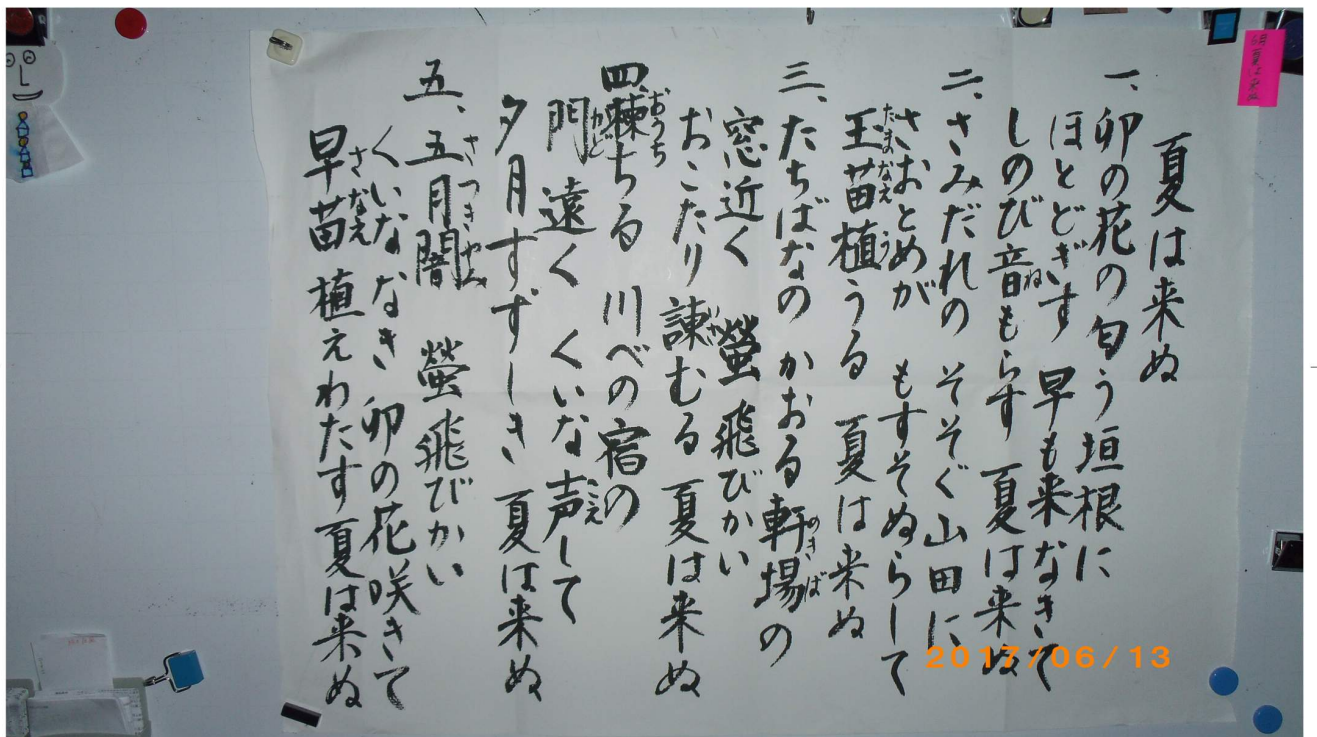 夏は来ぬ
一、卯の花の匂う垣根に
ほとどぎす 早も来なきて
しのび音もらす 夏は来ぬ
二、さみだれの そそぐ山田に
さおとめが もすそぬらして
玉苗植うる 夏は来ぬ
三、たちばなの かおる軒場の
窓近く 螢飛びかい
おこたり諫むる 夏は来ぬ
四、楝ちる 川べの宿の
門遠く くいな声して
夕月すずしき 夏は来ぬ
五、五月闇 螢飛びかい
くいななき 卯の花咲きて
早苗植えわたす 夏は来ぬ
2017/06/13